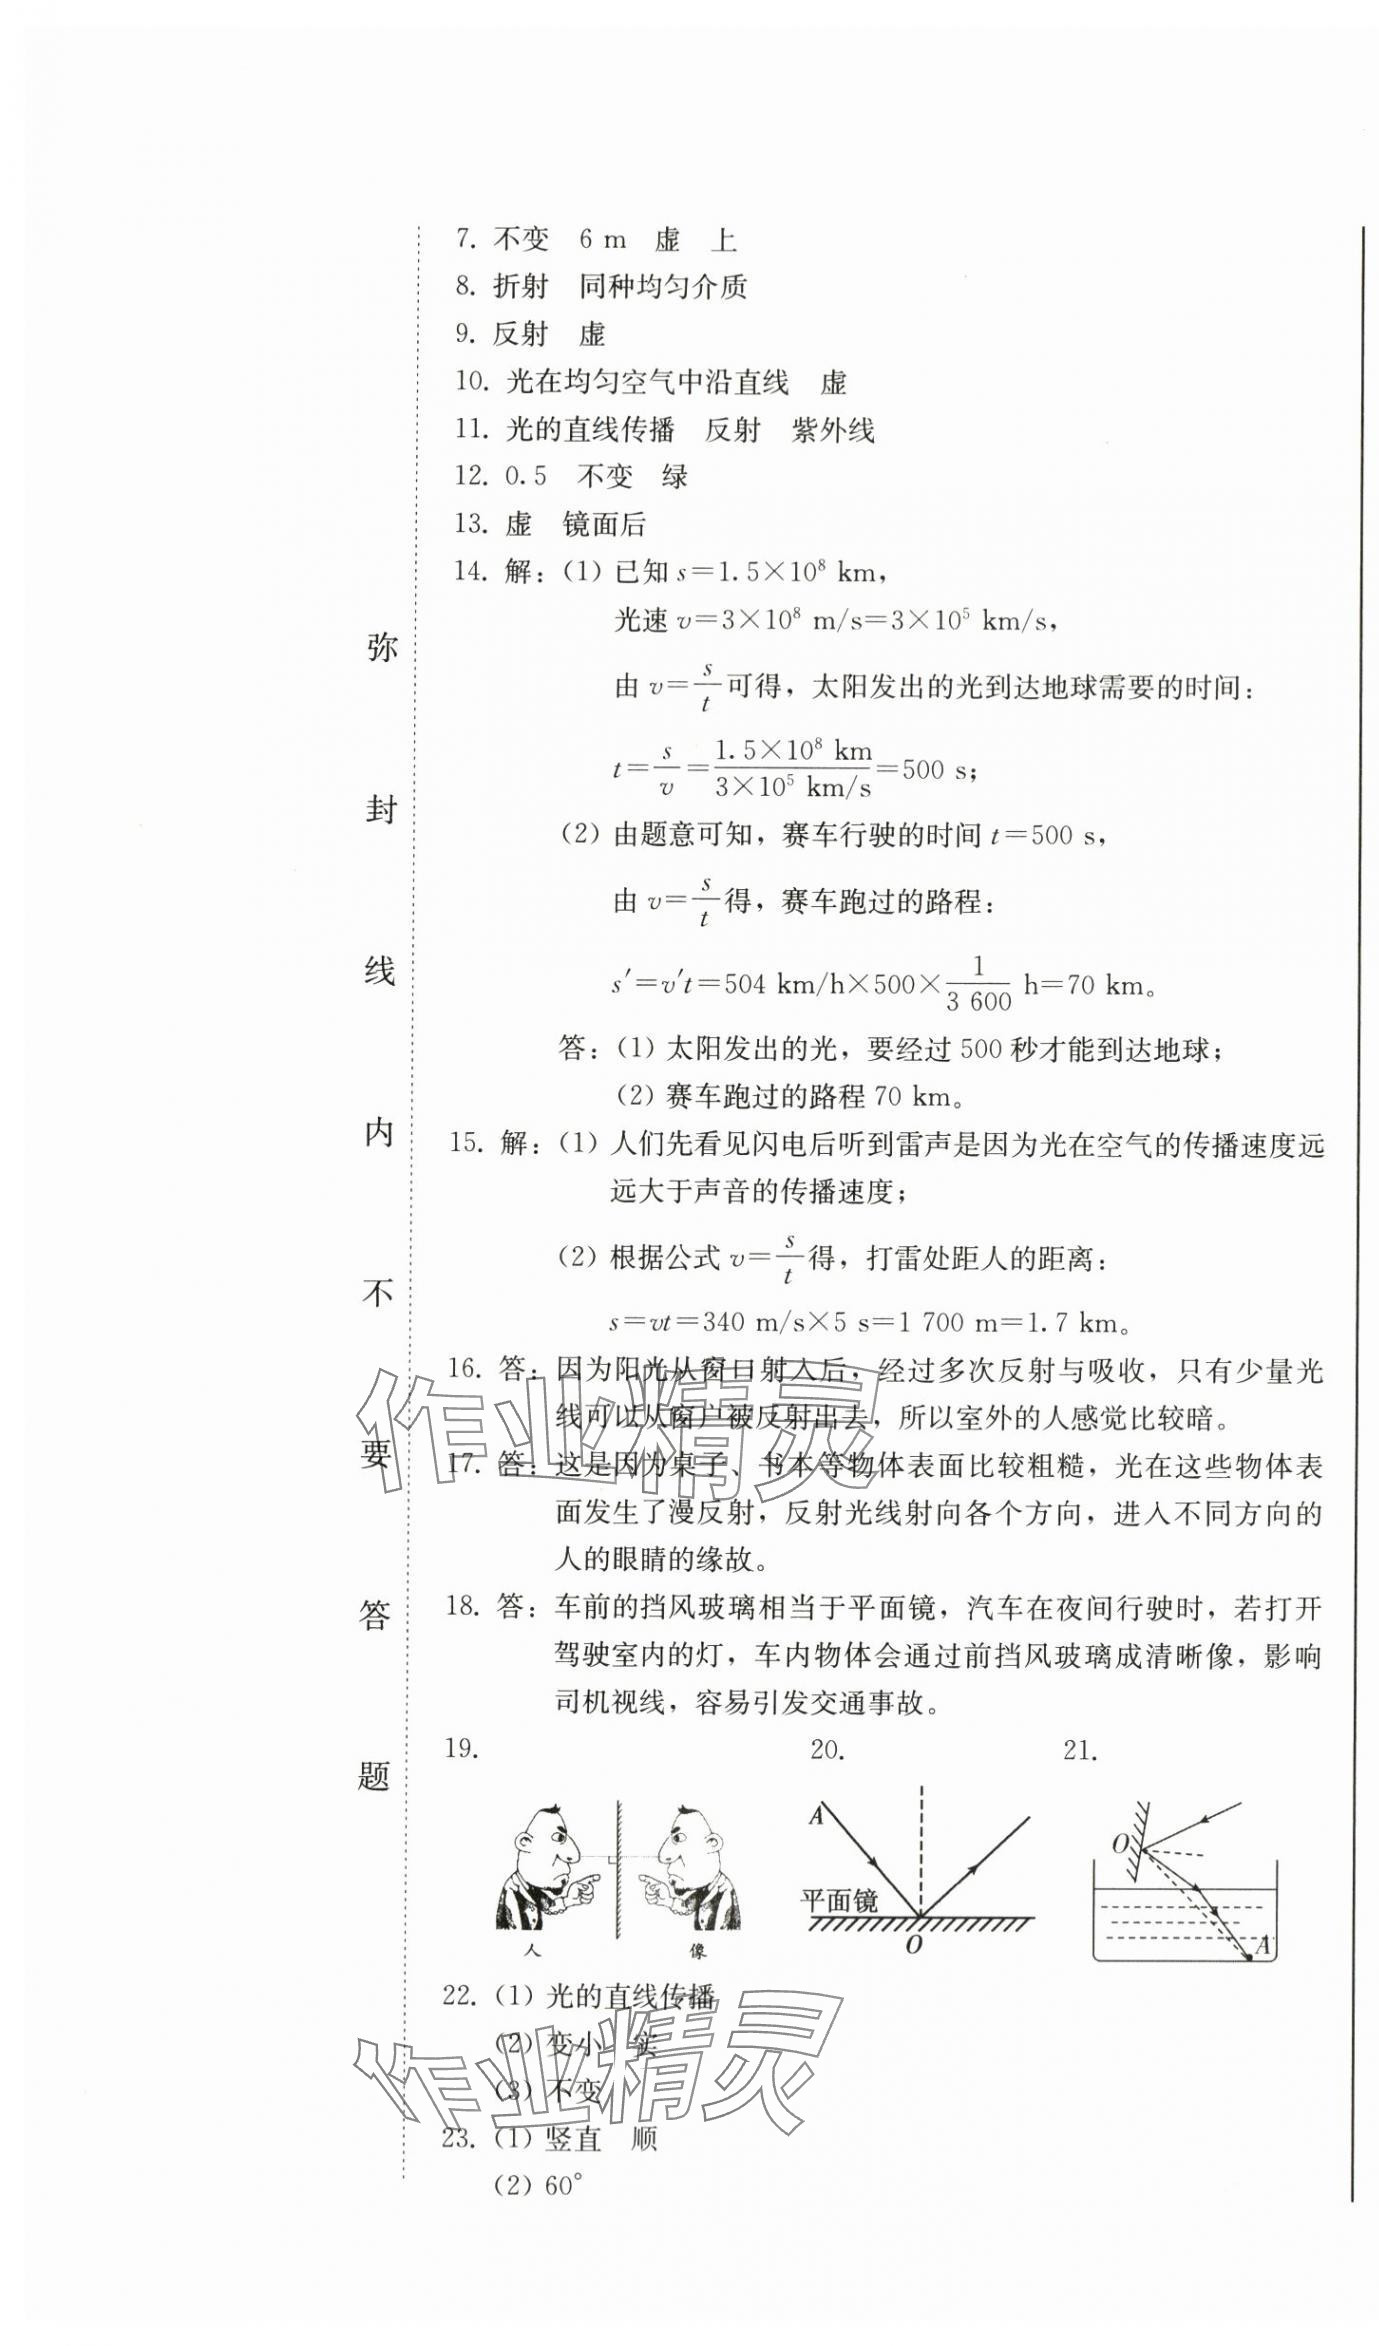 7. 不变　6 m　虚　上
8. 折射　同种均匀介质
9. 反射　虚
10. 光在均匀空气中沿直线　虚
11. 光的直线传播　反射　紫外线
12. 0.5　不变　绿
13. 虚　镜面后
14. 解：(1) 已知 s=1.5×10⁸ km，
光速 v=3×10⁸ m/s=3×10⁵ km/s，
由 v=s/t 可得，太阳发出的光到达地球需要的时间：
t=s/v=1.5×10⁸ km/3×10⁵ km/s=500 s；
(2) 由题意可知，赛车行驶的时间 t=500 s，
由 v=s/t 得，赛车跑过的路程：
s′=v′t=504 km/h×500×1/3 600 h=70 km。
答：(1) 太阳发出的光，要经过 500 秒才能到达地球；
(2) 赛车跑过的路程 70 km。
15. 解：(1) 人们先看见闪电后听到雷声是因为光在空气的传播速度远
远大于声音的传播速度；
(2) 根据公式 v=s/t 得，打雷处距人的距离：
s=vt=340 m/s×5 s=1 700 m=1.7 km。
16. 答：因为阳光从窗口射入后，经过多次反射与吸收，只有少量光
线可以从窗户被反射出去，所以室外的人感觉比较暗。
17. 答：这是因为桌子、书本等物体表面比较粗糙，光在这些物体表
面发生了漫反射，反射光线射向各个方向，进入不同方向的
人的眼睛的缘故。
18. 答：车前的挡风玻璃相当于平面镜，汽车在夜间行驶时，若打开
驾驶室内的灯，车内物体会通过前挡风玻璃成清晰像，影响
司机视线，容易引发交通事故。
19.
人　像
20.
A
平面镜
O
21.
O
A
22. (1) 光的直线传播
(2) 变小　实
(3) 不变
23. (1) 竖直　顺
(2) 60°
弥
封
线
内
不
要
答
题
作业精灵
作业精灵